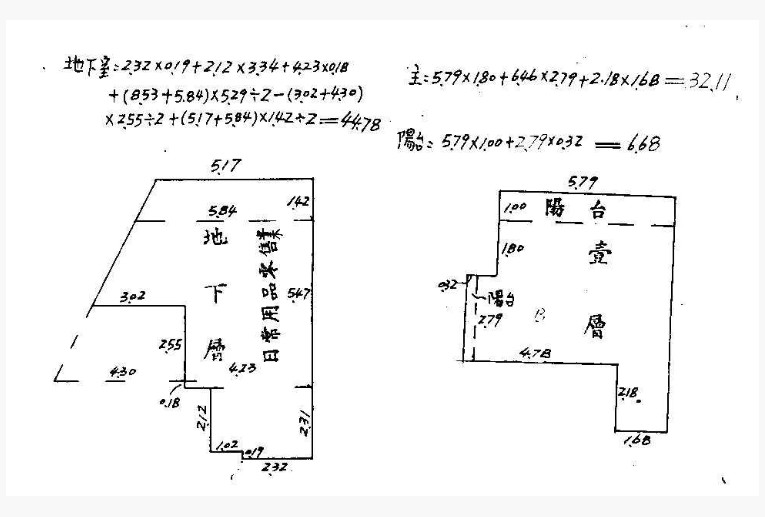 地下室:2.32×0.19+2.12×3.34+4.23×0.18
+(8.53+5.84)×5.29÷2-(3.02+4.30)
×2.55÷2+(5.17+5.84)×1.42÷2=44.78
主:5.79×1.80+6.46×2.79+2.18×1.68=32.11
陽台:5.79×1.00+2.79×0.32=6.68
5.17
5.84
1.42
地下層
日常用品零售業
5.47
3.02
2.55
4.30
4.23
0.18
2.12
2.31
1.02
0.19
2.32
5.79
1.00
陽台
1.80
壹層
0.32
陽台
2.79
B
4.78
2.18
1.68